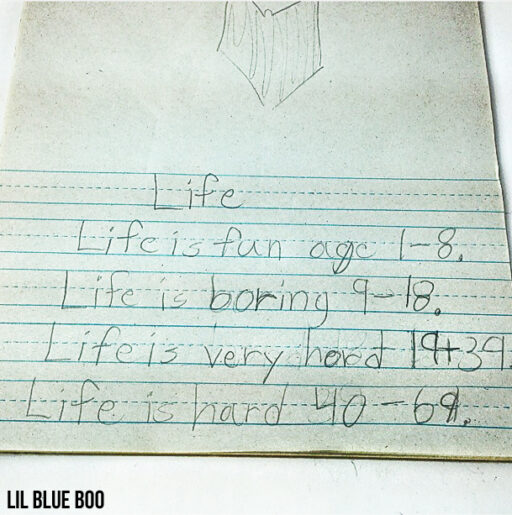 Life
Life is fun age 1-8.
Life is boring 9-18.
Life is very hard 19+39.
Life is hard 40-69.
LIL BLUE BOO